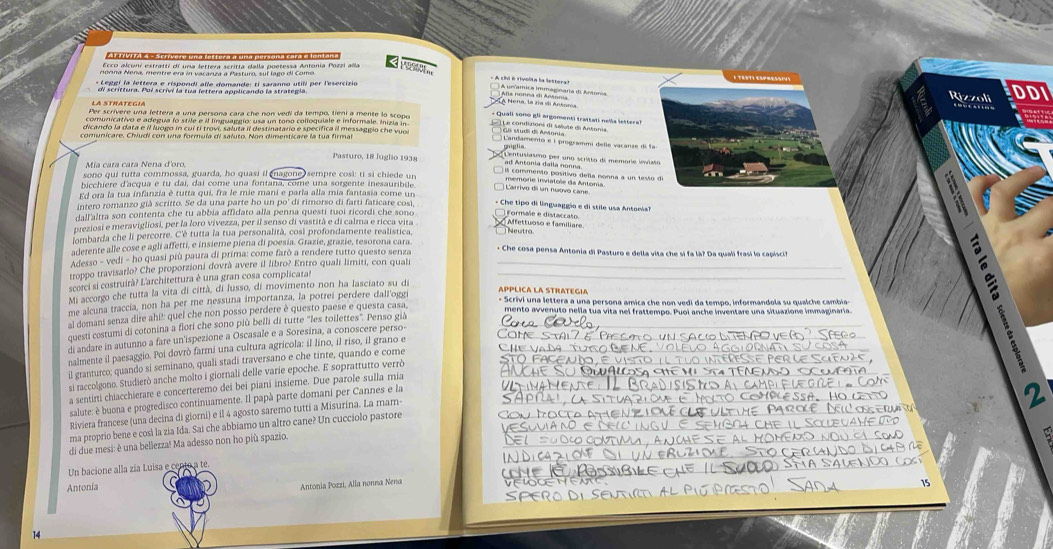 ATTIVITÀ 4 - Scrivere una lettera a una persona cara e lontana
Ecco alcuni estratti di una lettera scritta dalla poetessa Antonia Pozzi alla
nonna Nena, mentre era in vacanza a Pasturo, sul lago di Como.
LEGGERE
E SCRIVERE
• Leggi la lettera e rispondi alle domande: ti saranno utili per l'esercizio
di scrittura. Poi scrivi la tua lettera applicando la strategia.
LA STRATEGIA
Per scrivere una lettera a una persona cara che non vedi da tempo, tieni a mente lo scopo
comunicativo e adegua lo stile e il linguaggio: usa un tono colloquiale e informale. Inizia in-
dicando la data e il luogo in cui ti trovi, saluta il destinatario e specifica il messaggio che vuoi
comunicare. Chiudi con una formula di saluto. Non dimenticare la tua firma!
Pasturo, 18 luglio 1938
Mia cara cara Nena d'oro,
sono qui tutta commossa, guarda, ho quasi il magone, sempre così: ti si chiede un
bicchiere d'acqua e tu dai, dai come una fontana, come una sorgente inesauribile.
Ed ora la tua infanzia è tutta qui, fra le mie mani e parla alla mia fantasia come un
intero romanzo già scritto. Se da una parte ho un po' di rimorso di farti faticare così,
dall'altra son contenta che tu abbia affidato alla penna questi tuoi ricordi che sono
preziosi e meravigliosi, per la loro vivezza, per il senso di vastità e di calma e ricca vita
lombarda che li percorre. C'è tutta la tua personalità, così profondamente realistica,
aderente alle cose e agli affetti, e insieme piena di poesia. Grazie, grazie, tesorona cara.
Adesso - vedi - ho quasi più paura di prima: come farò a rendere tutto questo senza
troppo travisarlo? Che proporzioni dovrà avere il libro? Entro quali limiti, con quali
scorci si costruirà? L'architettura è una gran cosa complicata!
Mi accorgo che tutta la vita di città, di lusso, di movimento non ha lasciato su di
me alcuna traccia, non ha per me nessuna importanza, la potrei perdere dall'oggi
al domani senza dire ahi!: quel che non posso perdere è questo paese e questa casa,
questi costumi di cotonina a fiori che sono più belli di tutte "les toilettes". Penso già
di andare in autunno a fare un'ispezione a Oscasale e a Soresina, a conoscere perso-
nalmente il paesaggio. Poi dovrò farmi una cultura agricola: il lino, il riso, il grano e
il granturco: quando si seminano, quali sfadi traversano e che tinte, quando e come
si raccolgono. Studierò anche molto i giornali delle varie epoche. E soprattutto verrò
a sentirti chiacchierare e concerteremo dei bei piani insieme. Due parole sulla mia
salute: è buona e progredisco continuamente. Il papà parte domani per Cannes e la
Riviera francese (una decina di giorni) e il 4 agosto saremo tutti a Misurina. La mam-
ma proprio bene e così la zia Ida. Sai che abbiamo un altro cane? Un cucciolo pastore
di due mesi: è una bellezza! Ma adesso non ho più spazio.
Un bacione alla zia Luisa e cento a te.
Antonia
Antonia Pozzi, Alla nonna Nena
14
I TESTI ESPRESSIVI
• A chi è rivolta la lettera?
A un'amica immaginaria di Antonia.
Alla nonna di Antonia.
A Nena, la zia di Antonia.
• Quali sono gli argomenti trattati nella lettera?
Le condizioni di salute di Antonia.
Gli studi di Antonia.
L'andamento e i programmi delle vacanze di fa-
miglia.
L'entusiasmo per uno scritto di memorie inviato
ad Antonia dalla nonna.
Il commento positivo della nonna a un testo di
memorie inviatole da Antonia.
L'arrivo di un nuovo cane.
• Che tipo di linguaggio e di stile usa Antonia?
Formale e distaccato.
Affettuoso e familiare.
Neutro.
• Che cosa pensa Antonia di Pasturo e della vita che si fa là? Da quali frasi lo capisci?
APPLICA LA STRATEGIA
• Scrivi una lettera a una persona amica che non vedi da tempo, informandola su qualche cambia-
mento avvenuto nella tua vita nel frattempo. Puoi anche inventare una situazione immaginaria.
Cara Carla,
COME STAI? È PASSATO UN SACCO DI TEMPO VERO? SPERO
CHE VADA TUTTO BENE. VOLEVO AGGIORNATI SU COSA
STO FACENDO, E VISTO IL TUO INTERESSE PER LE SCIENZE,
ANCHE SU QUALCOSA CHE MI STA TENENDO OCCUPATA
ULTIMAMENTE: IL BRADISISMO AI CAMPI FLEGREI. COME
SAPRAI, LA SITUAZIONE È MOLTO COMPLESSA. HO LETTO
CON MOLTA ATTENZIONE LE ULTIME PAROLE DELL'OSSERVATORIO
VESUVIANO E DELL'INGV E SEMBRA CHE IL SOLLEVAMENTO
DEL SUOLO CONTINUI, ANCHE SE AL MOMENTO NON CI SONO
INDICAZIONI DI UN ERUZIONE. STO CERCANDO DI CAPIRE
COME È POSSIBILE CHE IL SUOLO STIA SALENDO COSÌ
VELOCEMENTE.
SPERO DI SENTIRTI AL PIÙ PRESTO! SARA
15
Rizzoli
EDUCATION
DDI
DIDATTICA
DIGITALE
INTEGRATA
Tra le dita
Scienze da esplorare
2